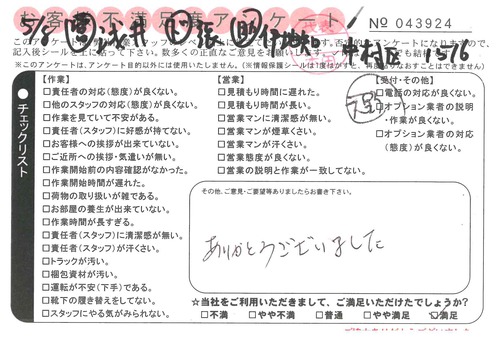 お客様不満足度アンケート
No 043924
5/8 営 浅井
中村区 1576
※このアンケートは、アンケート目的以外には使用いたしません。(※情報保護シールは1度はがすと、再度貼りなおすことはできません)
チェックリスト
【作業】
□責任者の対応(態度)が良くない。
□他のスタッフの対応(態度)が良くない。
□作業を見ていて不安がある。
□責任者(スタッフ)に好感が持てない。
□お客様への挨拶が出来ていない。
□ご近所への挨拶・気遣いが無い。
□作業開始前の内容確認がなかった。
□作業開始時間が遅れた。
□荷物の取り扱いが雑である。
□お部屋の養生が出来ていない。
□作業時間が長すぎる。
□責任者(スタッフ)に清潔感が無い。
□責任者(スタッフ)が汗くさい。
□トラックが汚い。
□梱包資材が汚い。
□運転が不安(下手)である。
□靴下の履き替えをしてない。
□スタッフにやる気がみられない。
【営業】
□見積もりに遅れた。
□見積もり時間が長い。
□営業マンに清潔感が無い。
□営業マンが煙草くさい。
□営業マンが汗くさい。
□営業態度が良くない。
□営業の説明と作業が一致してない。
【受付・その他】
□電話の対応が良くない。
□オプション業者の説明
・作業が良くない。
□オプション業者の対応
(態度)が良くない。
その他、ご意見・ご要望等ありましたらお書き下さい。
ありがとうございました
☆当社をご利用いただきまして、ご満足いただけたでしょうか?
□不満 □やや不満 □普通 □やや満足 ☑満足